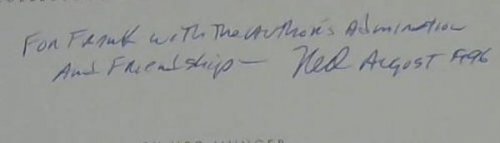 For Frank with the author's Admiration
And Friendship — Ned August 1996